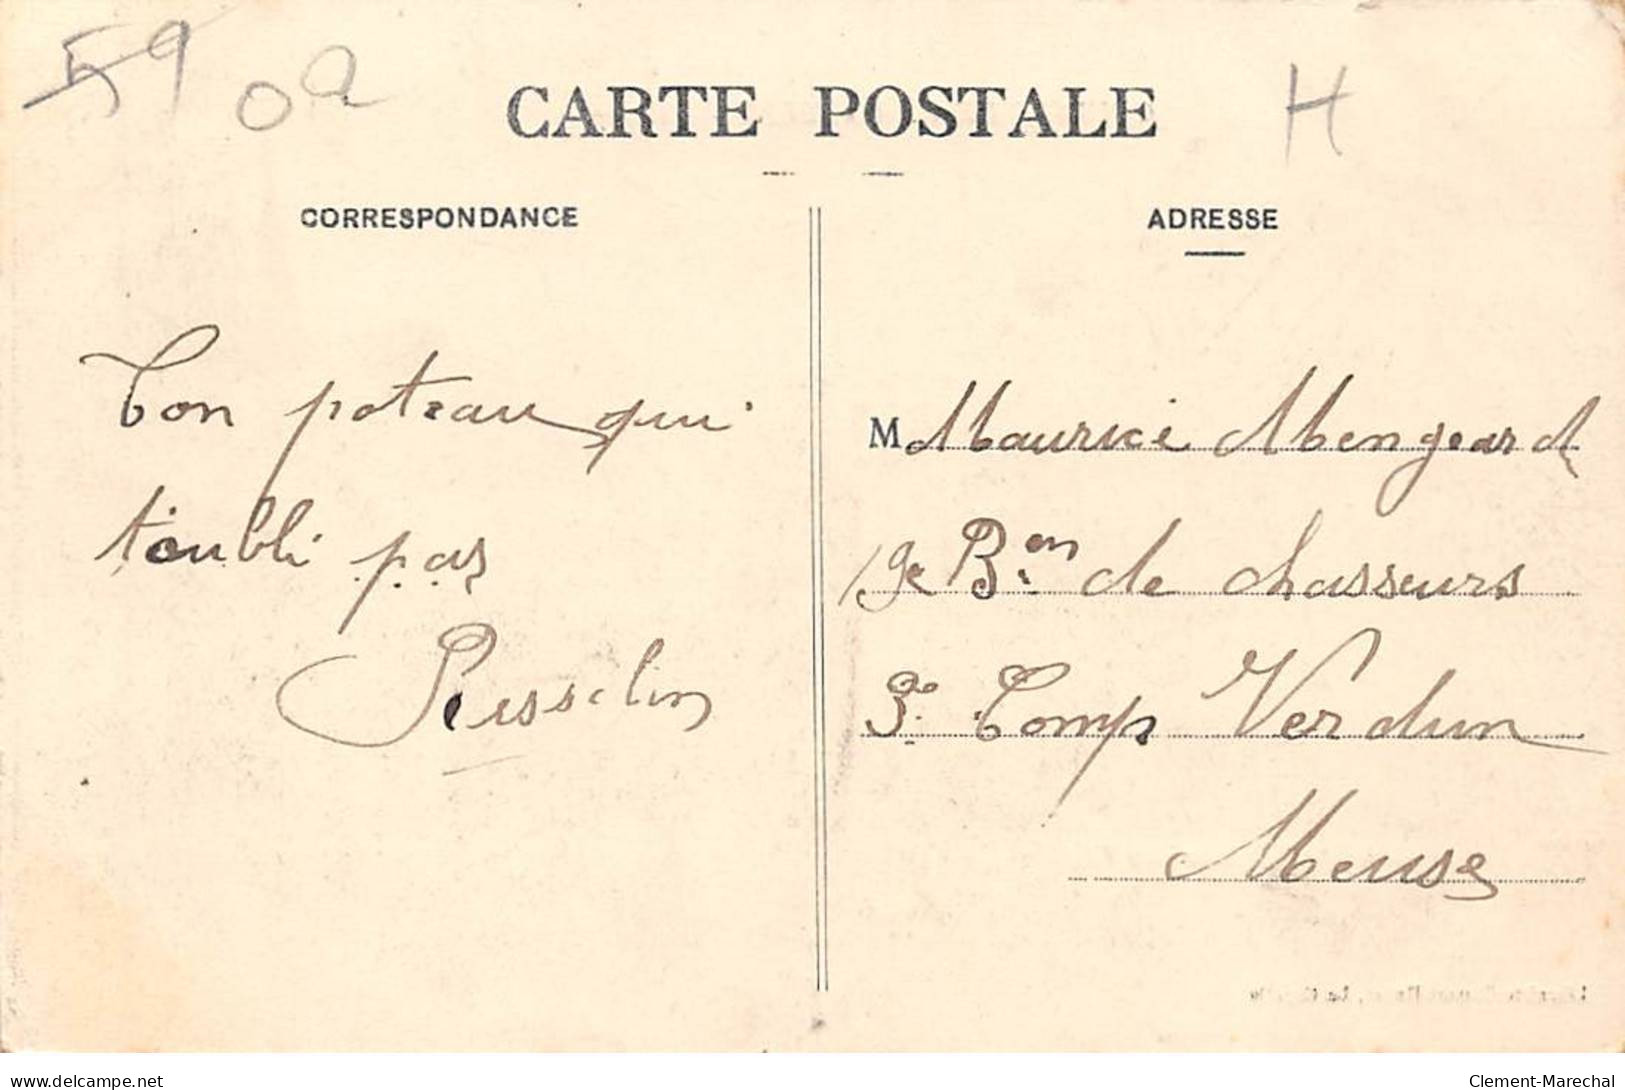 59 0a
CARTE POSTALE
H
CORRESPONDANCE
Ton poteau qui
t'oubli pas
Russelin
ADRESSE
M Maurice Mengeard
19e Bon de chasseurs
3e Comp Verdun
Meuse
www.delcampe.net
Clement-Marechal